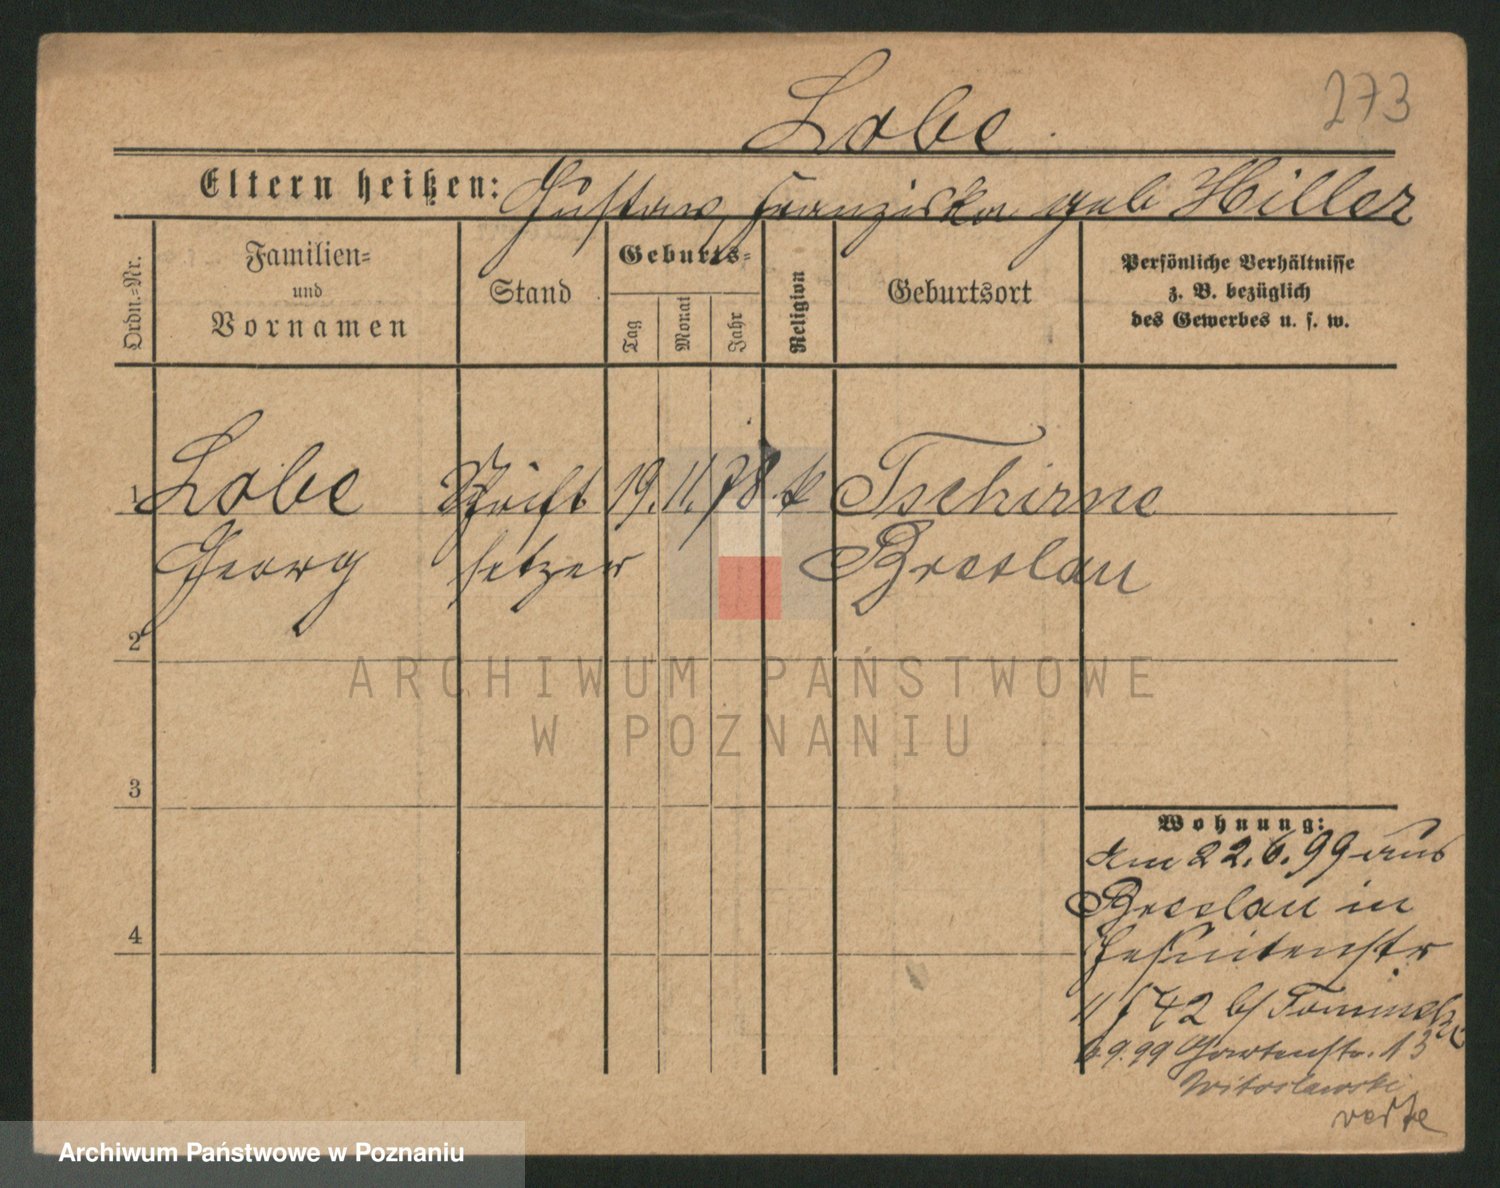 273
Lobe.
Eltern heißen: Gustav, Franziska geb Hiller
Ordn.-Nr.
Familien-
und
Vornamen
Stand
Geburts-
Tag
Monat
Jahr
Religion
Geburtsort
Persönliche Verhältnisse
z. B. bezüglich
des Gewerbes u. s. w.
1 Lobe Schrift 19. 11. 78. k Tschirne
Georg setzer Breslau
2
3
4
ARCHIWUM PAŃSTWOWE
W POZNANIU
Wohnung:
Am 22. 6. 99 aus
Breslau in
Jesuitenstr
11 42 b/
6. 9. 99 Gartenstr. 13
Witoslawski
verte
Archiwum Państwowe w Poznaniu